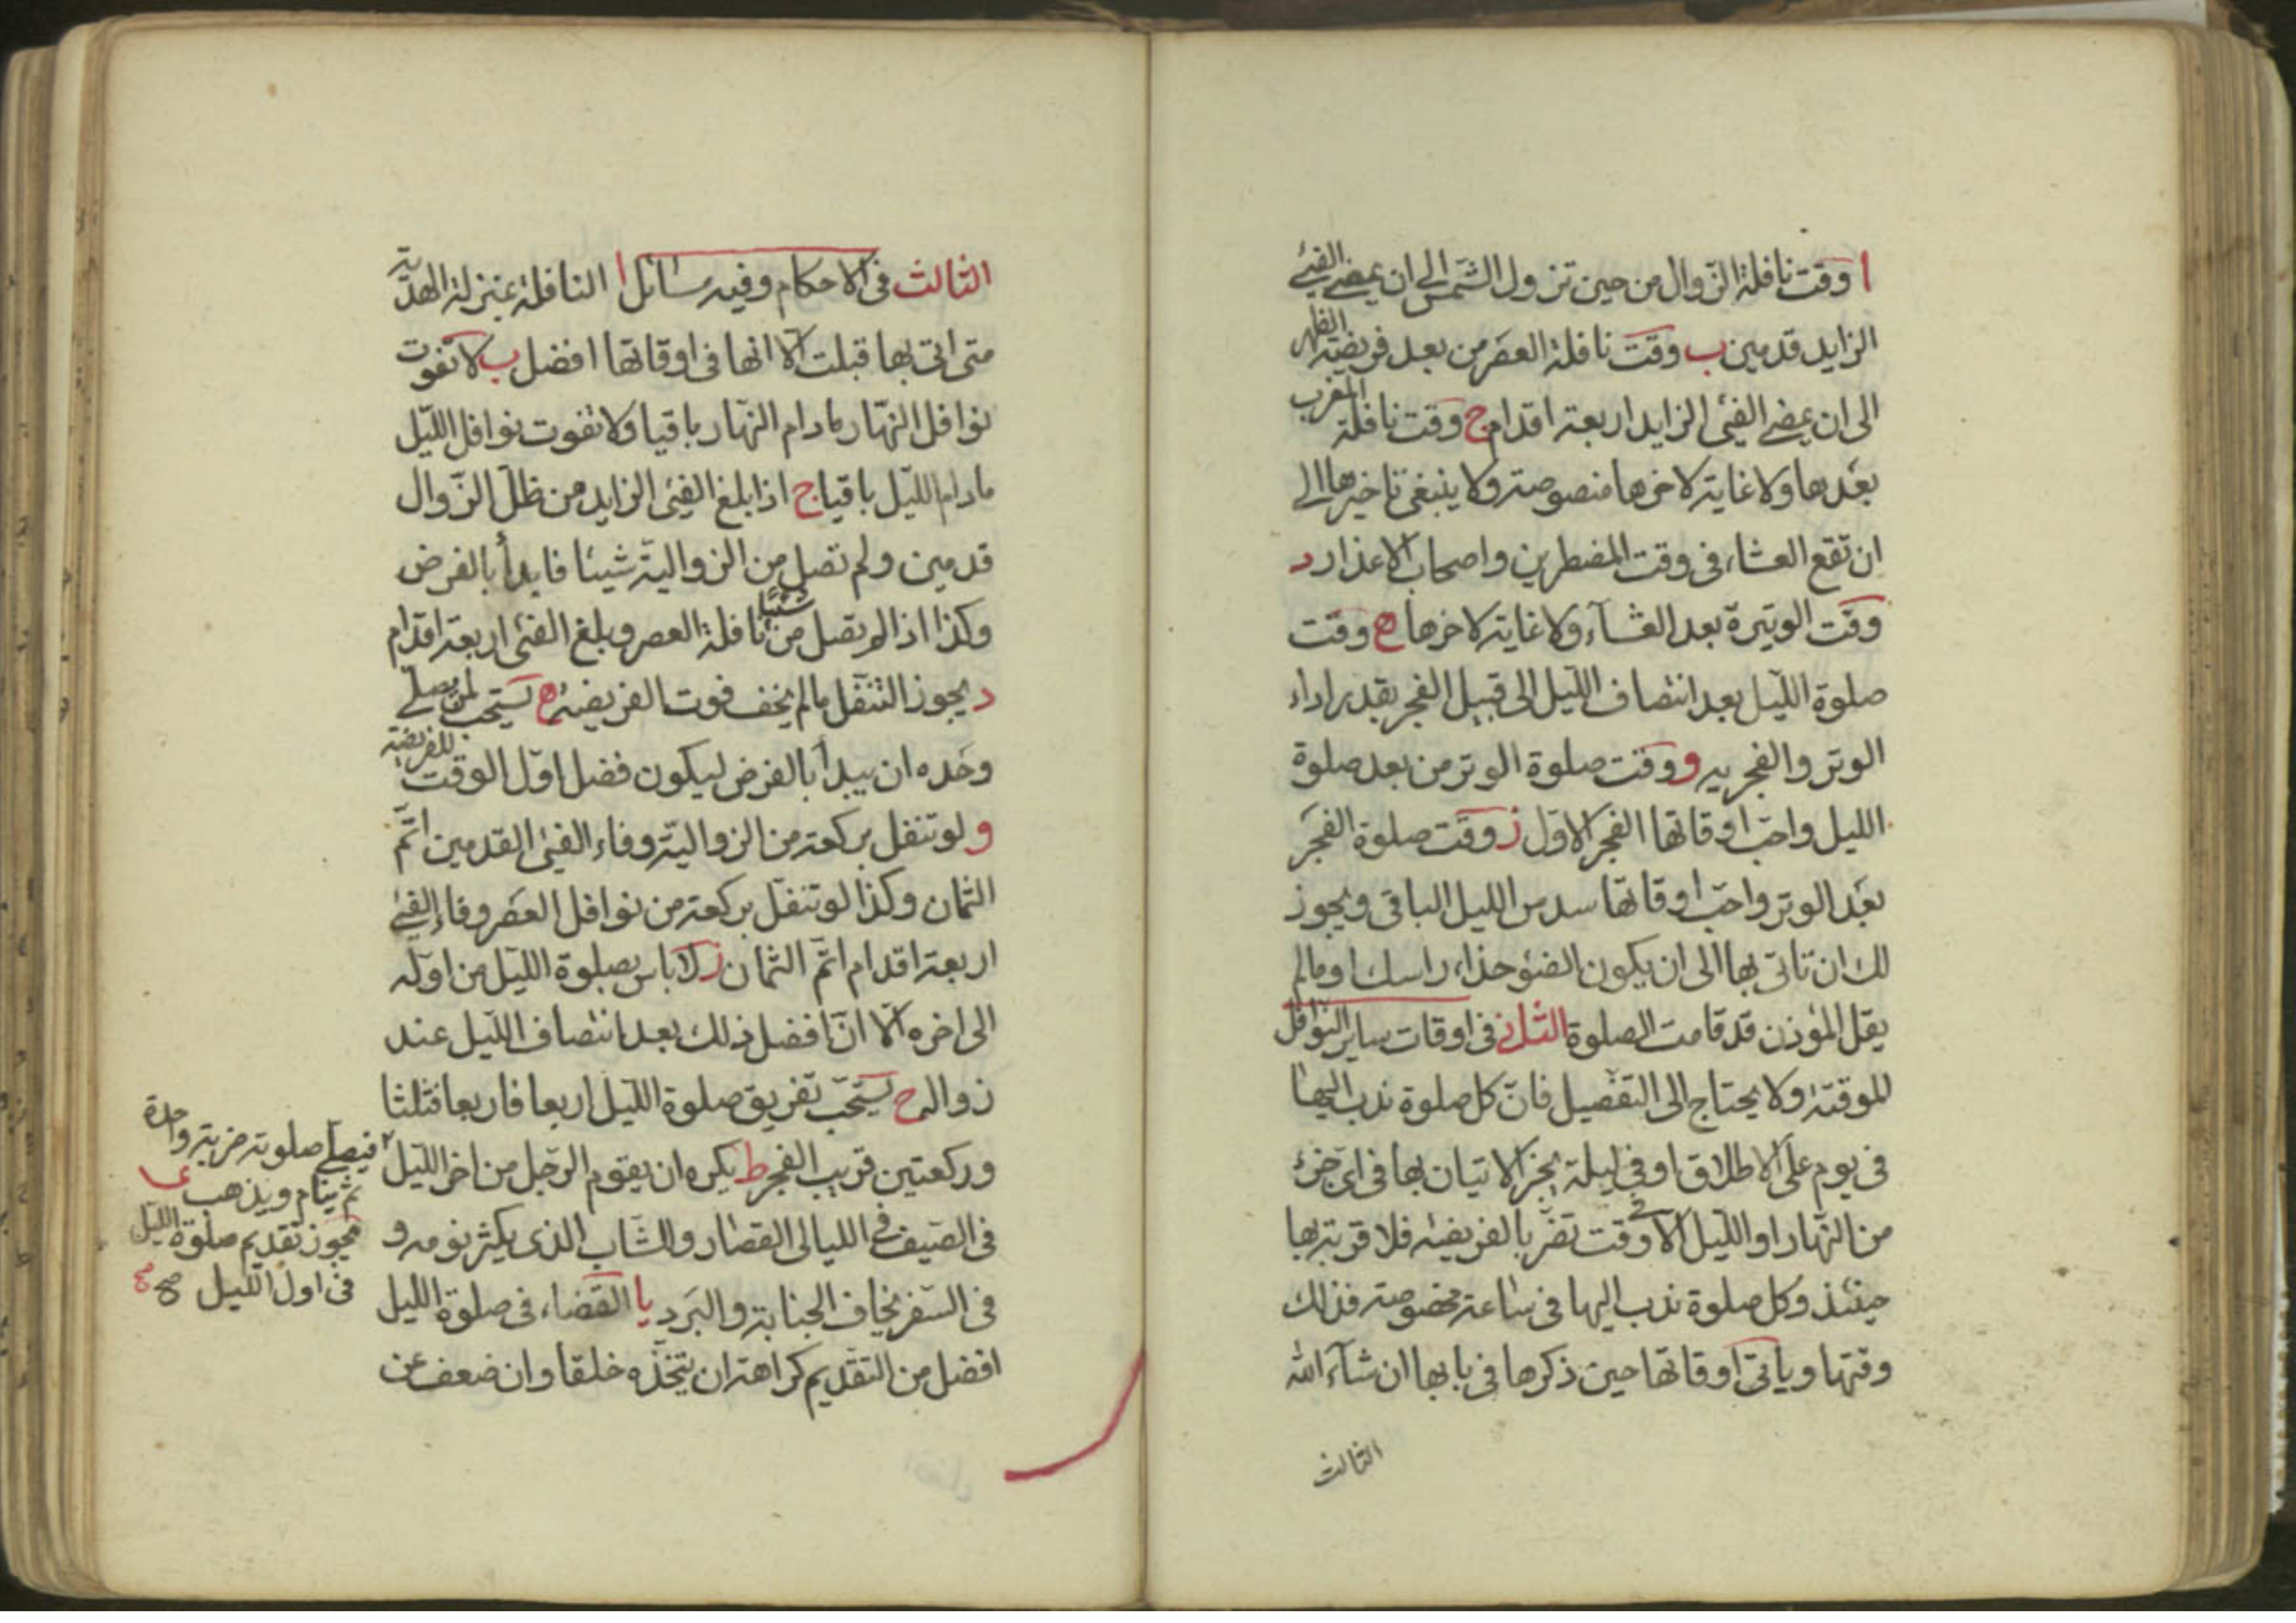 ا وقت نافلة الزوال من حين تزول الشمس الى ان يمضى الفيئ
الزايد قدمين ب وقت نافلة العصر من بعد فريضة الظهر
الى ان يمضى الفيئ الزايد اربعة اقدام ج وقت نافلة المغرب
بعدها ولا غاية لاخرها منصوصة ولا ينبغى تاخيرها الى
ان تقع العشاء فى وقت المضطرين واصحاب الاعذار د
وقت الوتيرة بعد العشآء ولا غاية لاخرها ه وقت
صلوة الليل بعد انتصاف الليل الى قبيل الفجر بقدر اداء
الوتر والفجريه و وقت صلوة الوتر من بعد صلوة
الليل واحب اوقاتها الفجر الاول ز وقت صلوة الفجر
بعد الوتر واحب اوقاتها سدس الليل الباقى ويجوز
لك ان تاتى بها الى ان يكون الضوء حذاء راسك او مالم
يقل المؤذن قد قامت الصلوة الثانى فى اوقات ساير النوافل
الموقتة ولا يحتاج الى التفصيل فان كل صلوة ندب اليها
فى يوم على الاطلاق او فى ليلة يجز الاتيان بها فى اى جزء
من النهار او الليل الا فى وقت تضر بالفريضة فلا قربة بها
حينئذ وكل صلوة ندب اليها فى ساعة مخصوصة فذلك
وقتها وياتى اوقاتها حين ذكرها فى بابها ان شآء الله
الثالث
الثالث فى الاحكام وفيه مسائل ا النافلة بمنزلة الهدية
متى اتى بها قبلت الا انها فى اوقاتها افضل ب لا تفوت
نوافل النهار مادام النهار باقيا ولا تفوت نوافل الليل
مادام الليل باقيا ج اذا بلغ الفيئ الزايد من ظل الزوال
قدمين ولم تصل من الزوالية شيئا فابدأ بالفرض
وكذا اذا لم تصل من نافلة العصر شيئا وبلغ الفيئ اربعة اقدام
د يجوز التنفل مالم يخف فوت الفريضة ه يستحب لمن يصلى
وحده ان يبدأ بالفرض ليكون فضل اول الوقت للفريضة
و لو تنفل بركعة من الزوالية وفاء الفيئ القدمين اتم
الثمان وكذا لو تنفل بركعة من نوافل العصر وفاء الفيئ
اربعة اقدام اتم الثمان ز لا باس بصلوة الليل من اوله
الى اخره الا ان افضل ذلك بعد انتصاف الليل عند
زواله ح يستحب تفريق صلوة الليل اربعا فاربعا فثلثا
وركعتين قريب الفجر ط يكره ان يقوم الرجل من اخر الليل
فيصلى صلوته ضربة واحدة
ثم ينام ويذهب ى
يجوز تقديم صلوة الليل
فى اول الليل صح صح
فى الصيف فى الليالى القصار والشاب الذى يكثر نومه و
فى السفر يخاف الجنابة والبرد يا القضاء فى صلوة الليل
افضل من التقديم كراهة ان يتخذه خلقا وان ضعف عن